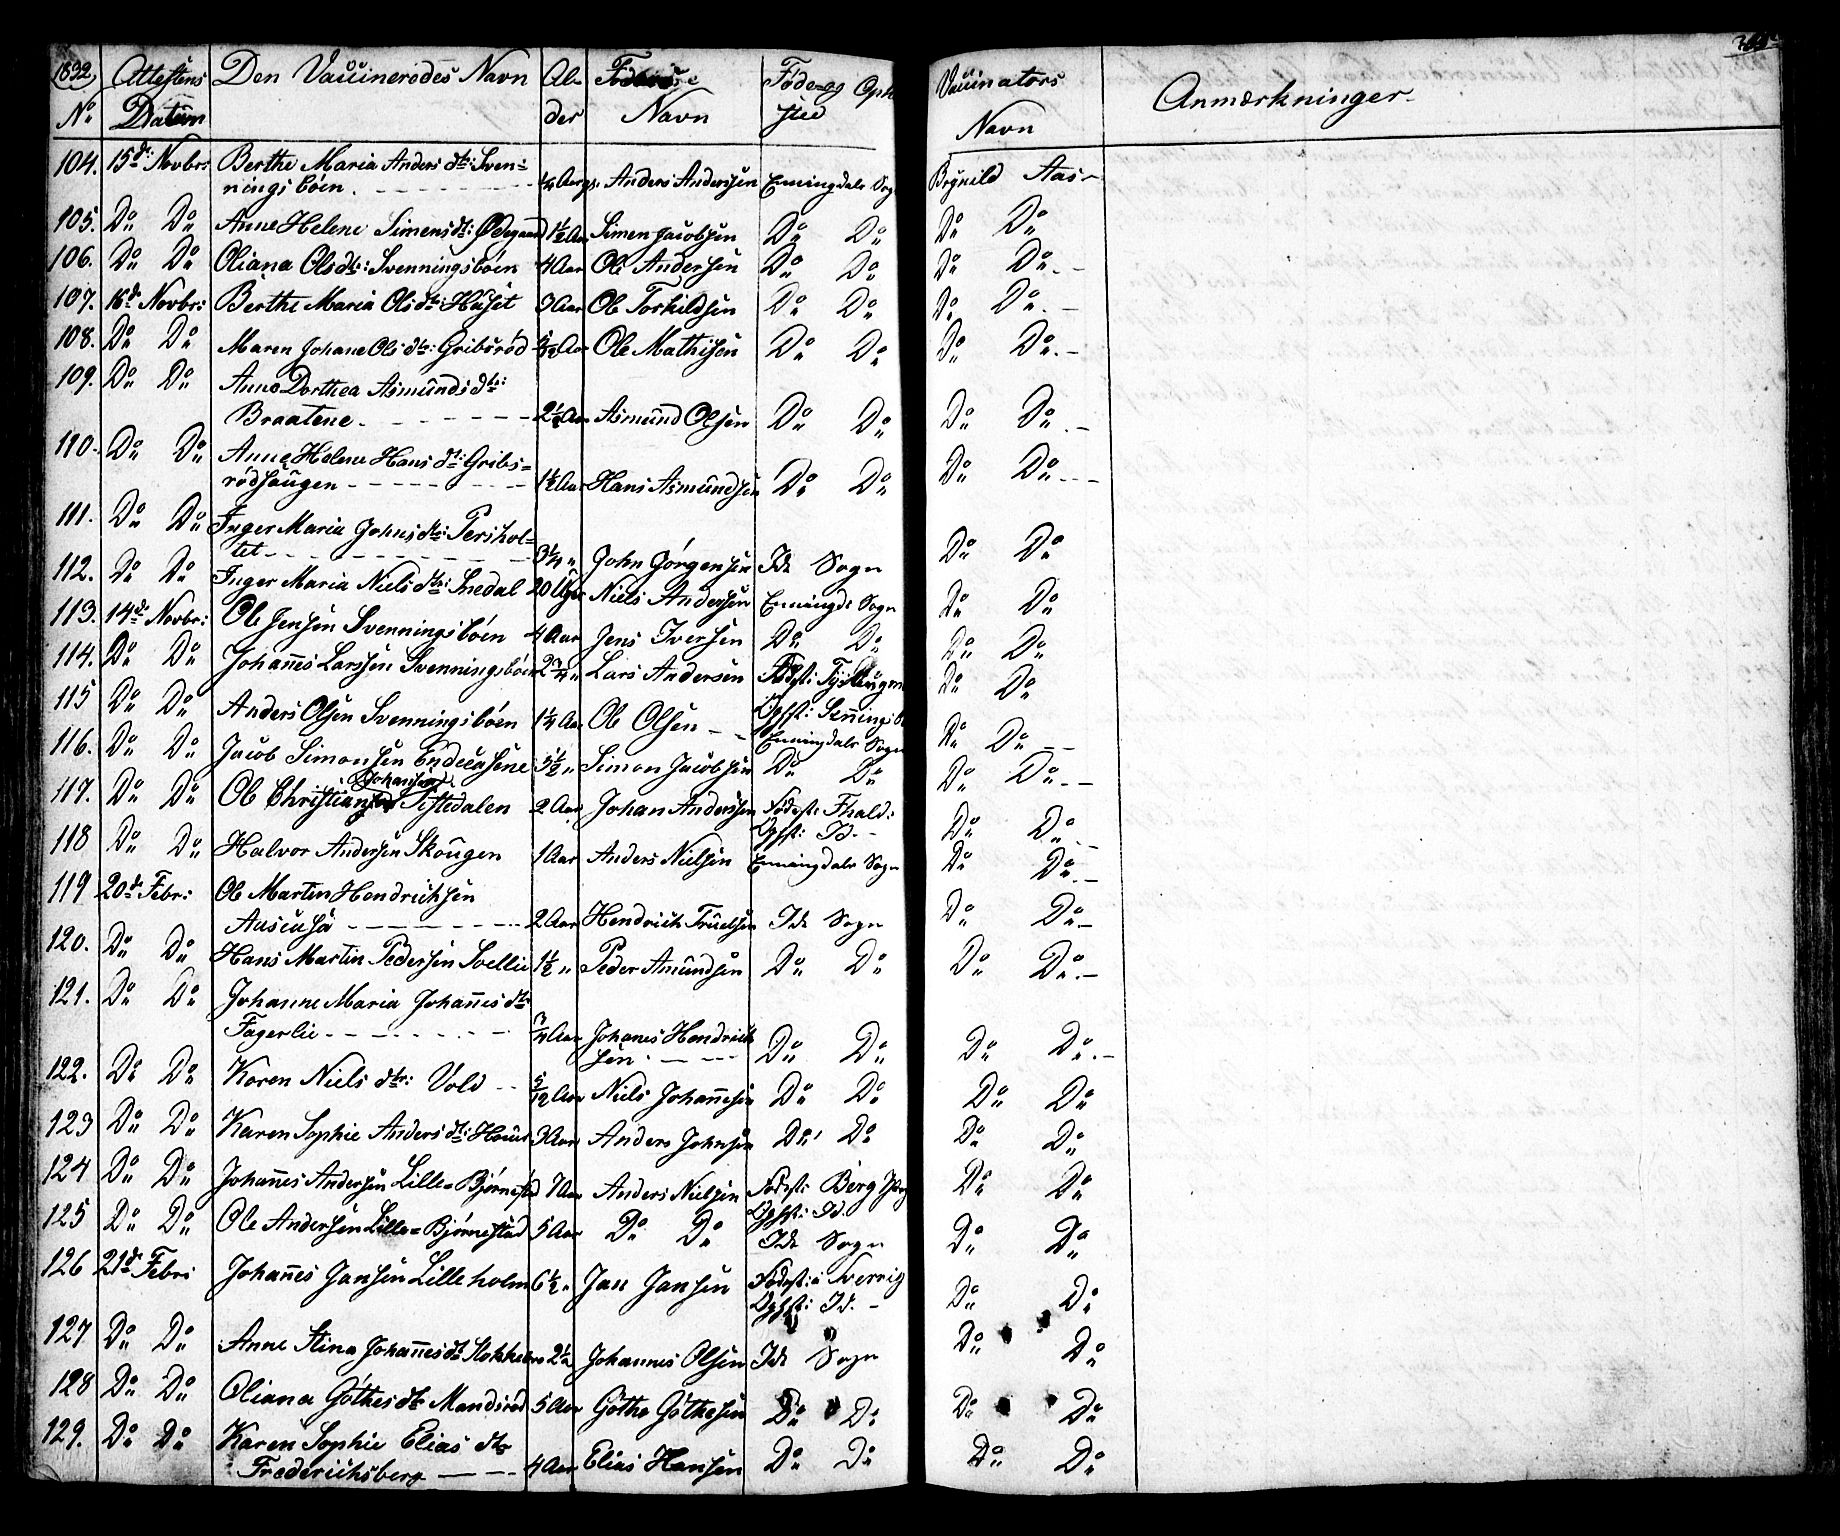 1832 Attestens Den Vaccineredes Navn Al- Navn Føde- og Oph Vaccinators Anmærkninger.
No Datum der sted Navn
104. 15d: Novbr: Berthe Maria Anders dtr: Sven-
ningsbøen. ¼ Aargl. Anders Andersen Enningdals Sogn Brynild Aas
105. Do Do Anne Helene Simensdtr: Ødegaard 1½ Aar Simen Jacobsen Do Do Do Do
106. Do Do Oliana Olsdtr: Svenningsbøen 4 Aar Ole Andersen Do Do Do Do
107. 16d Novbr: Berthe Maria Olsdtr: Huset 3 Aar Ole Torkildsen Do Do Do Do
108. Do Do Maren Johane Olsdtr: Gribsrød Aar Ole Mathisen Do Do Do Do
109. Do Do Anne Dorthea Asmundsdtr:
Braatene. 2½ Aar Asmund Olsen Do Do Do Do
110. Do Do Anne Helene Hansdtr: Gribs-
rødhaugen 1½ Aar Hans Asmundsen Do Do Do Do
111. Do Do Inger Maria Johnsdtr: Pershol-
tet 3¼ " John Jørgensen Ide Sogn Do Do
112. Do Do Inger Maria Nielsdtr: Snedal 20 Uger Niels Andersen Enningd: Sogn Do Do
113. 14d Novbr: Ole Jensen Svenningsbøen 4 Aar Jens Iversen Do Do Do Do
114. Do Do Johannes Larssen Svenningsbøen 2¾ " Lars Andersen Fødest: Do Do
115 Do Do Anders Olsen Svenningsbøen 1¼ Aar Ole Olsen Enningdals Sogn Do Do
116. Do Do Jacob Simonsen 5½ " Simon Jacobsen Do Do Do Do
117. Do Do Ole Christian Johansen Tistedalen 2 Aar Johan Andersen Fødest: Fhald:
Ophst: Id. Do Do
118 Do Do Halvor Andersen Skougen 1 Aar Anders Nielsen Enningdals Sogn Do Do
119 20d Febr: Ole Martin Hendrichsen
2 Aar Hendrich Truelsen Ide Sogn Do Do
120. Do Do Hans Martin Pedersen Sollie 1½ " Peder Amundsen Do Do Do Do
121. Do Do Johanne Maria Johannesdtr
Fagerlie ¾ Aar Johanes Hendrich
sen Do Do Do Do
122. Do Do Karen Nielsdtr: Vold 5/12 Aar Niels Johannesen Do Do Do Do
123 Do Do Karen Sophie Andersdtr: 3 Aar Anders Johnsen Do Do Do Do
124 Do Do Johannes Andersen Lille-Bjørnestad 7 Aar Anders Nielsen Fødest: Berg
Ophst: Id. Do Do
125 Do Do Ole Andersen Lille-Bjørnestad 5 Aar Do Do Ide Sogn Do Do
126 21d Febr: Johannes Jansen Lilleholm 6½ " Jan Jansen Fødest: i Sverrig
Ophst: Id. Do Do
127 Do Do Anne Stina Johannesdtr Stokkebro 2½ Johannes Olsen Ide Sogn Do Do
128 Do Do Oliana Gøthesdtr Mandsrød 5 Aar Gøthe Gøthesen Do Do Do Do
129. Do Do Karen Sophie Elias dtr
Frederichsberg 4 Aar Elias Hansen Do Do Do Do